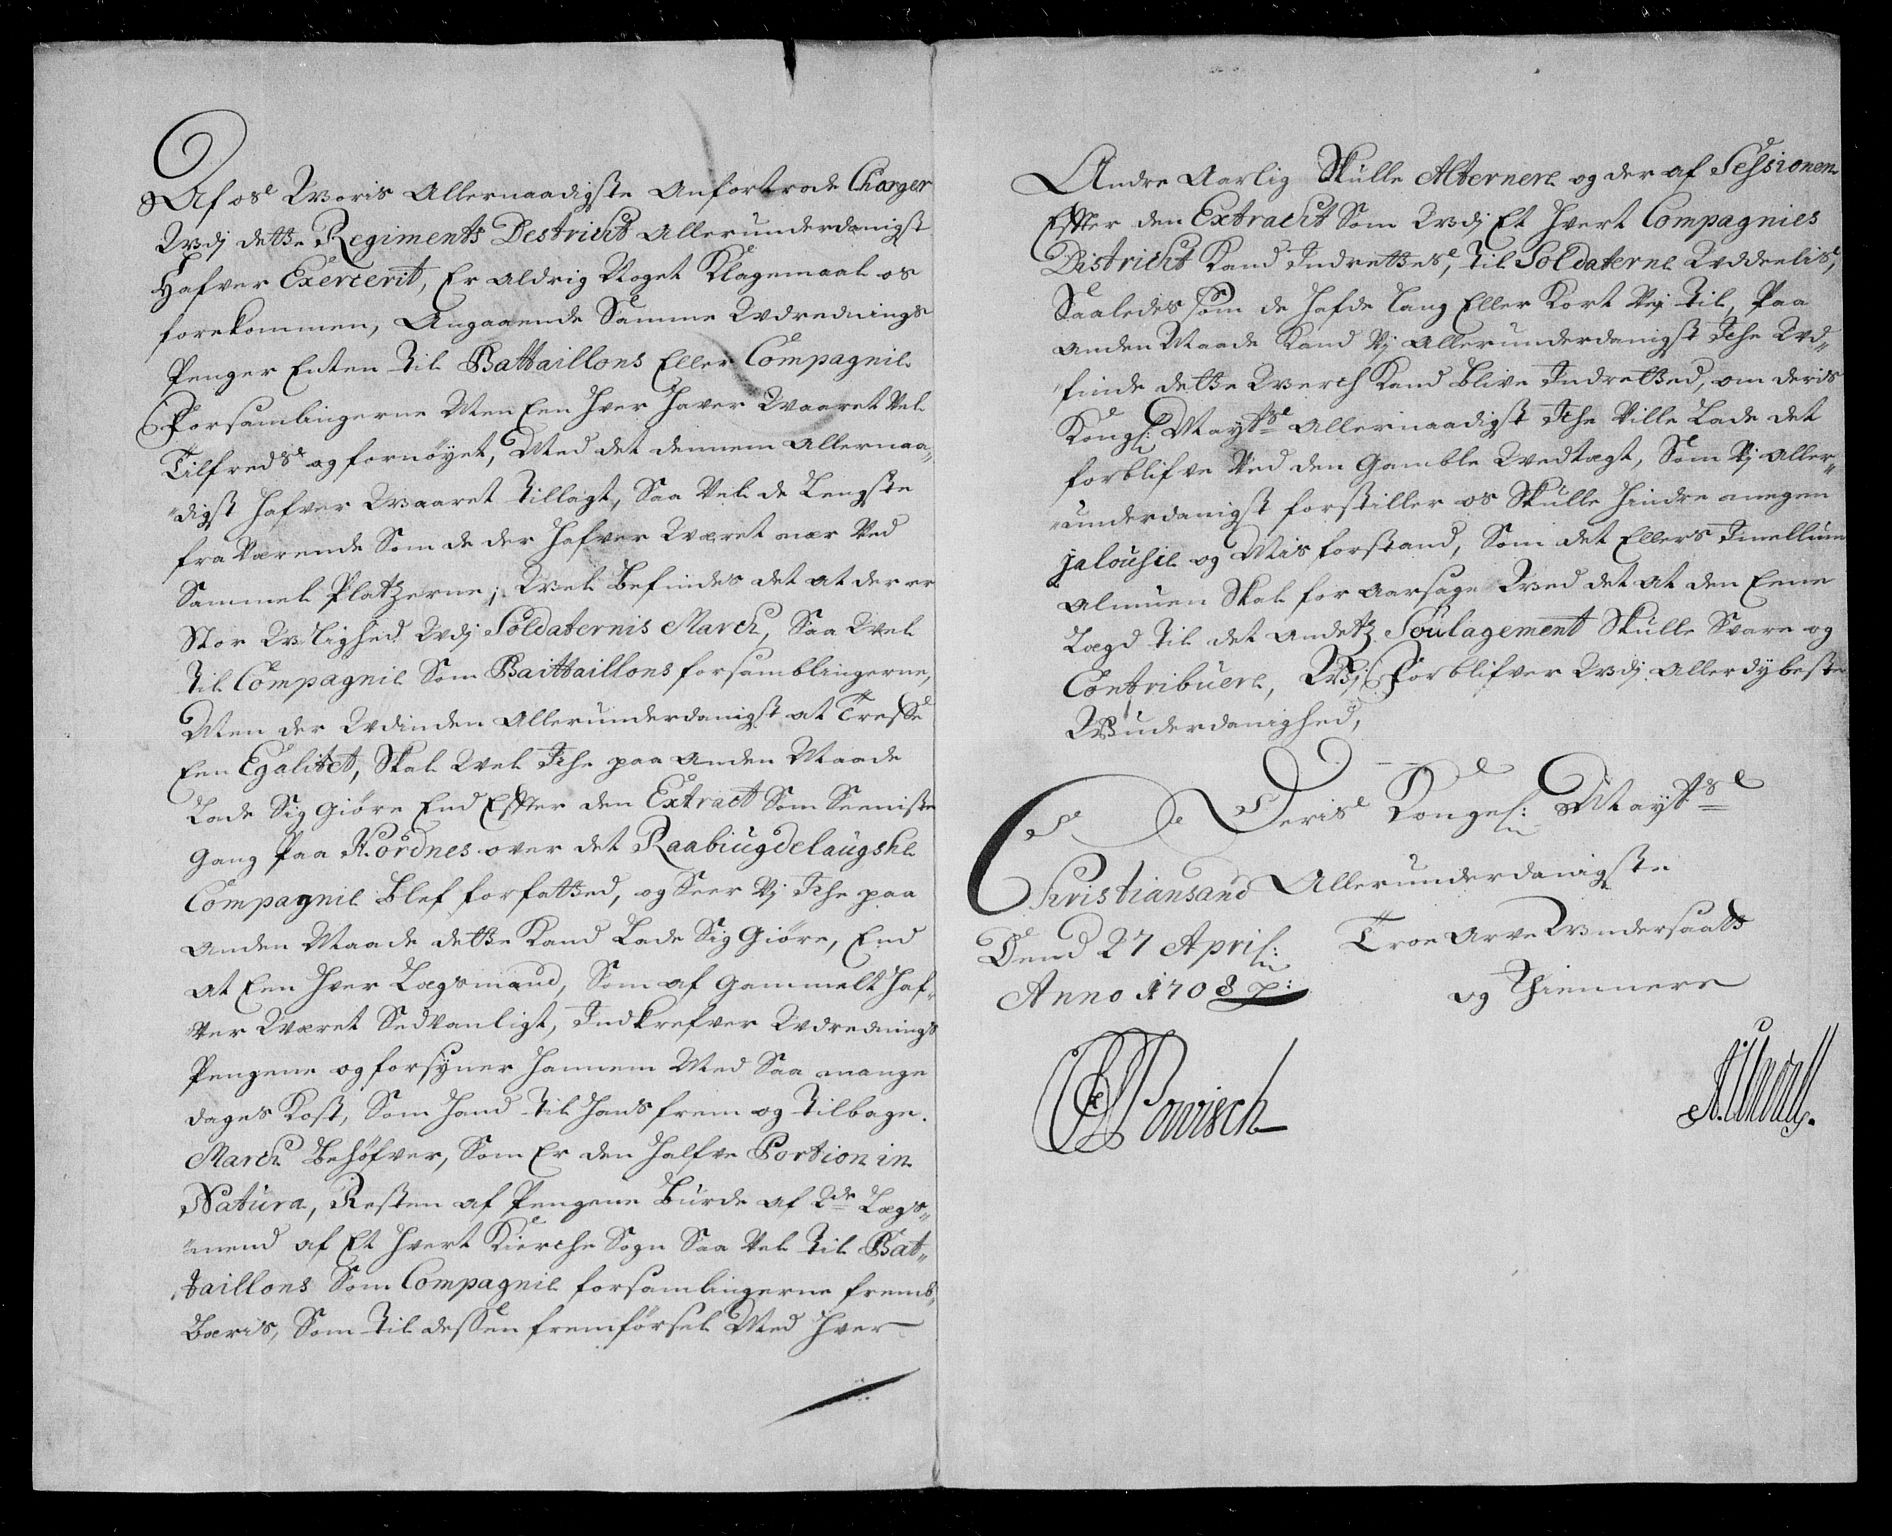 Af os Woris Allernaadigste Anfortrode Charger
Wdj dette Regiments Destricht Allerunderdanigst
Hafver Exercerit, Er Aldrig Noget Klagemaal os
forekommen, Angaaende Samme Wdrednings
Penger Enten til Battaillons Eller Compagnie
Forsamlingerne Men Een Hver Haver Waaret Vel
Tilfreds og fornøyet, Med det dennem Allernaa„
„digst Hafver Waaret tillagt, Saa Vel de Lengste
fra Værende Som de der Hafver Weret nær Ved
Sammel Platzerne; Wel Befindes det at der er
Stor Wlighed Wdj Soldaternis March, Saa Vel
til Compagnie Som Baittaillons forsamblingerne,
Men der Wdinden Allerunderdanigst at Treffe
Een Egalitet, Skal Vel Iche paa Anden Maade
Lade Sig Giøre End Effter den Extract Som Seeniste
Gang Paa N.ordnes over det Raabiugdelaugske
Compagnie Blef forfatted, og Seer Vj Iche paa
Anden Maade dette Kand Lade Sig Giøre, End
At Een Hver Lægsmand, Som af Gammelt Haf„
„Ver Weret Sedvanligt, Indkrefver Wdrednings
Pengene og forsyner Hannem Med Saa mange
dages Kost, Som Hand til Hans frem og tilbage
March Behøfver, Som Er den Halfve Portion in
Natura, Resten af Pengene Burde af 2de Lægs„
„mend af Et Hvert Kierche Sogn Saa Vel til Bat„
„taillons Som Compagnie forsamlingerne frem„
Bæris, Som til dessen fremførsel Med Hver
Andre Aarlig Skulle Alternere og der af Sessionen
Effter den Extracht Som Wdj Et Hvert Compagnies
Districht Kand Indrettes, til Soldaterne Uddeelis,
Saaledes som de Hafde Lang Eller Kort Vej til, Paa
Anden Maade Kand Vj Allerunderdanigst Iche Ud„
„finde dette Werch Kand Blive Indretted, om deris
Kongl: Mayts Allernaadigst Iche Ville Lade det
forblifve Ved den Gamble Wedtægt, Som Vj Aller„
„underdanigst forstiller os Skulle Hindre megen
jalousie og Misforstand, Som det Ellers Imellum
Almuen Skal for Aarsage Ved det at den Eene
Lægd til det Andetz Soulagement Skulle Svare og
Contribuere, Vj Forblifver Wdj Allerdybeste
Wnderdanighed,
Deris Kongel: Mayts
Christiansand Allerunderdanigste
Dend 27 April: Troe Arve Wndersaatt
Anno 1708 og Thiennere
Powisch